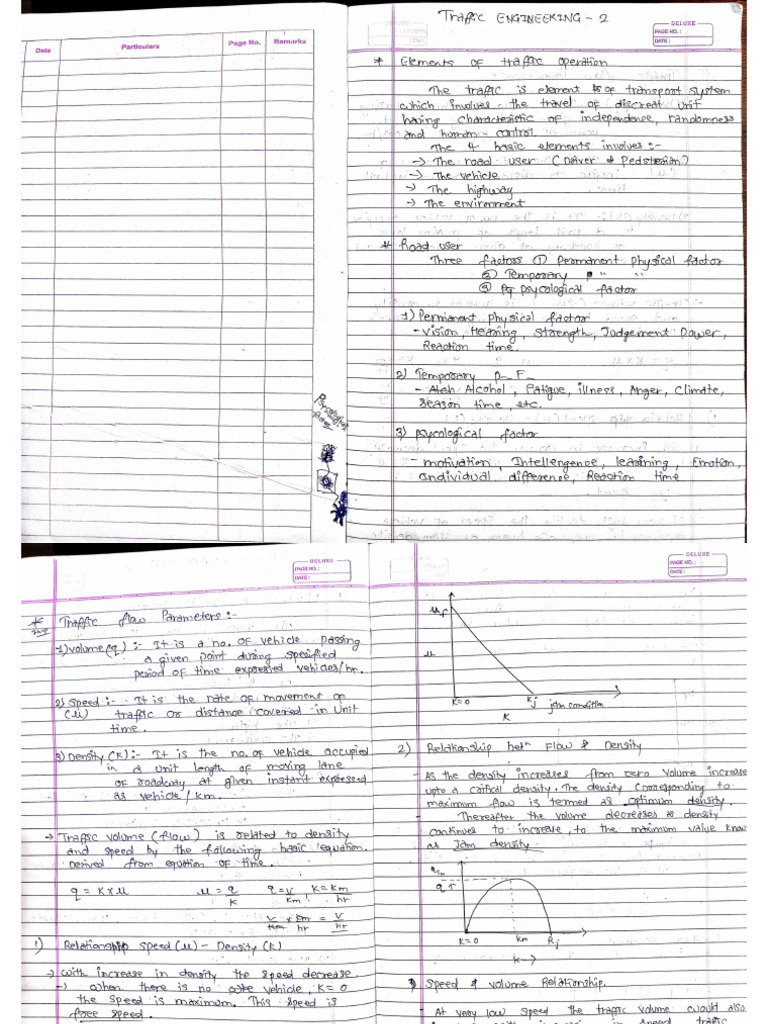 Date Particulars Page No. Remarks
Traffic ENGINEERING - 2
DELUXE
PAGE NO. :
DATE :
* Elements of traffic operation
The traffic is element is of transport system
which involves the travel of discreat unit
having characteristic of independence, randomness
and human control.
The 4 basic elements involves :-
→ The road user (Driver & Pedstesian)
→ The vehicle
→ The highway
→ The environment
* Road user
Three factors ① Permanent physical factor
② Temporary P " "
③ psycological factor
1) Permanent physical factor
- vision, Hearing, Strength, Judgement Power,
Reaction time.
2) Temporary P_ F_
- Alcohol, Fatigue, illness, Anger, Climate,
season time, etc.
3) psycological factor
- motivation, Intellengence, learning, Emotion,
individual difference, Reaction time
DELUXE
PAGE NO. :
DATE :
* Traffic flow Parameters :-
1) volume (q) :- It is a no. of vehicle passing
a given point during specified
period of time expressed vehicles/hr.
2) Speed :- It is the rate of movement of
(u) traffic or distance covered in Unit
time.
3) Density (K) :- It is the no. of vehicle occupied
in a unit length of moving lane
of roadway at given instant expressed
as vehicle / km.
→ Traffic volume (flow) is related to density
and speed by the following basic equation.
Derived from eqution of time.
q = K x u u = q/K q = V/Km, K = Km/hr
V/Km x Km/hr = V/hr
1) Relationship speed (u) - Density (K)
→ with increase in density the speed decrease.
→ when there is no vehicle, K = 0
the speed is maximum. This speed is
free speed.
DELUXE
PAGE NO. :
DATE :
uf
u
K=0 Kj jam condition
K
2) Relationship betn Flow & Density
- As the density increases from zero volume increase
upto a critical density. The density corresponding to
maximum flow is termed as optimum density.
- Thereafter the volume decreases as density
continues to increase, to the maximum value know
as Jam density.
qm
q
K=0 Km Kj
K →
3) Speed & volume Relationship.
- At very low speed the traffic volume would also